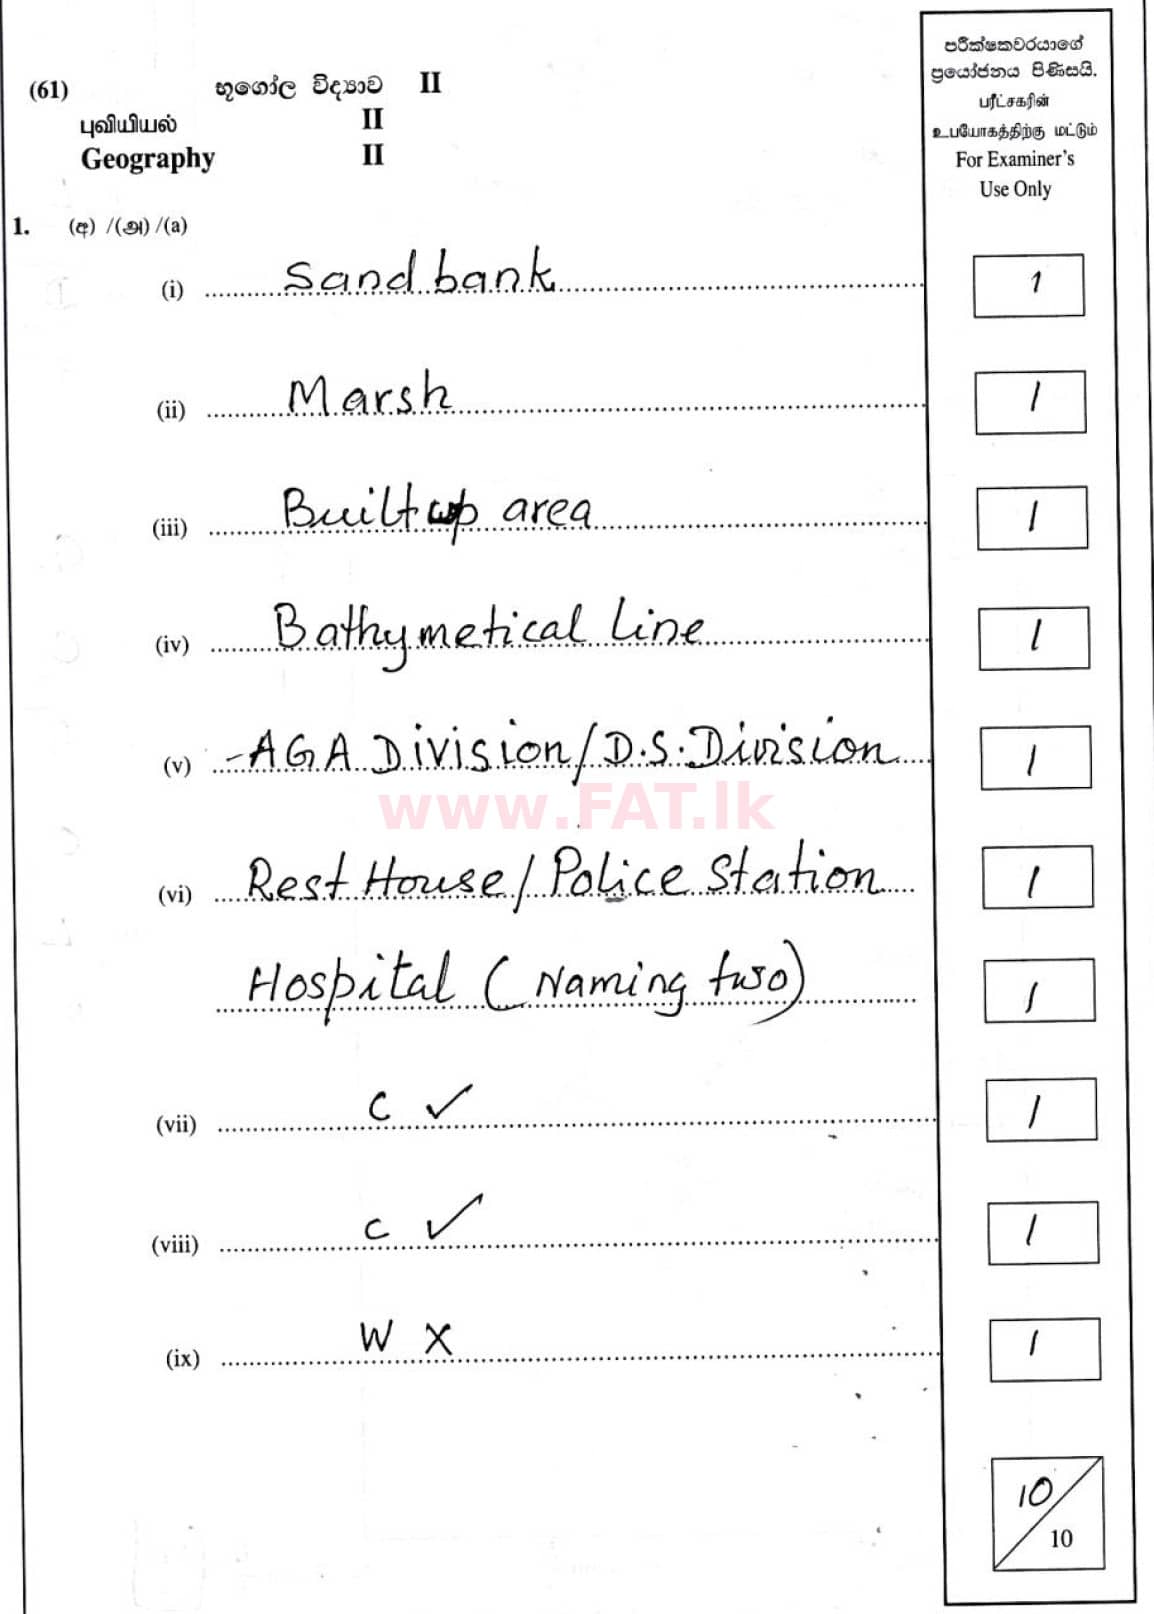 පරීක්ෂකවරයාගේ
ප්‍රයෝජනය පිණිසයි.
பரீட்சகரின்
உபயோகத்திற்கு மட்டும்
For Examiner's
Use Only
(61) භූගෝල විද්‍යාව II
புவியியல் II
Geography II
1. (අ) /(அ) /(a)
(i) Sand bank 1
(ii) Marsh 1
(iii) Built up area 1
(iv) Bathymetical Line 1
(v) - AGA Division / D.S. Division 1
www.FAT.lk
(vi) Rest House / Police Station 1
Hospital (Naming two) 1
(vii) C ✓ 1
(viii) C ✓ 1
(ix) W X 1
10/10